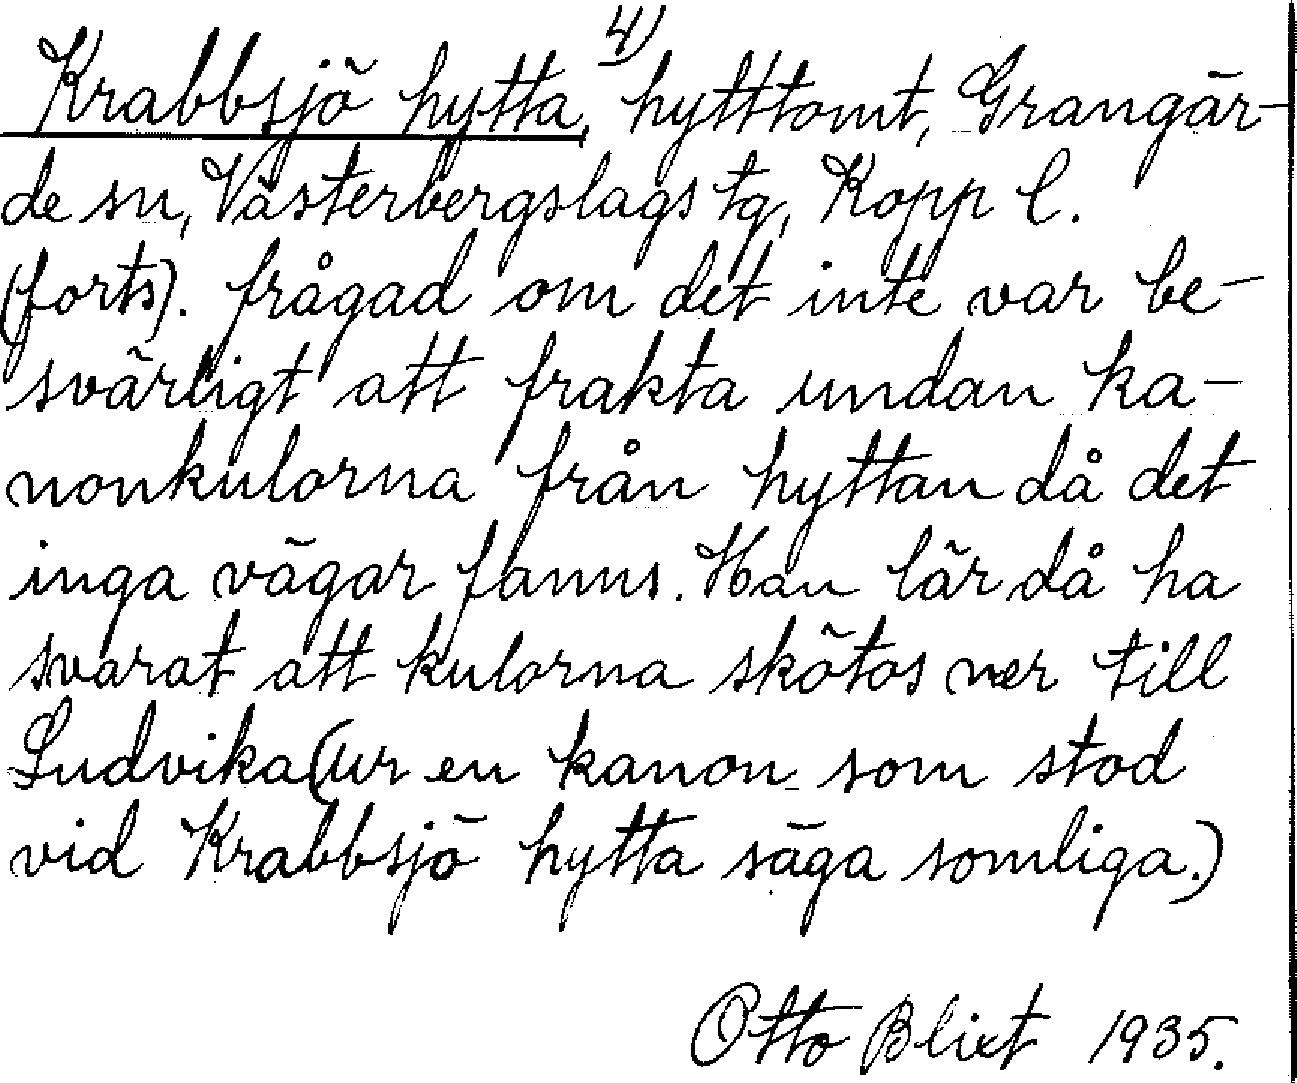 Krabbsjö hytta, 4) hytttomt, Grangär-
de sn, Västerbergslags tg, Kopp l.
(forts). frågad om det inte var be-
svärligt att frakta undan ka-
nonkulorna från hyttan då det
inga vägar fanns. Han lär då ha
svarat att kulorna skötos ner till
Ludvika (ur en kanon som stod
vid Krabbsjö hytta säga somliga.)
Otto Blixt 1935.